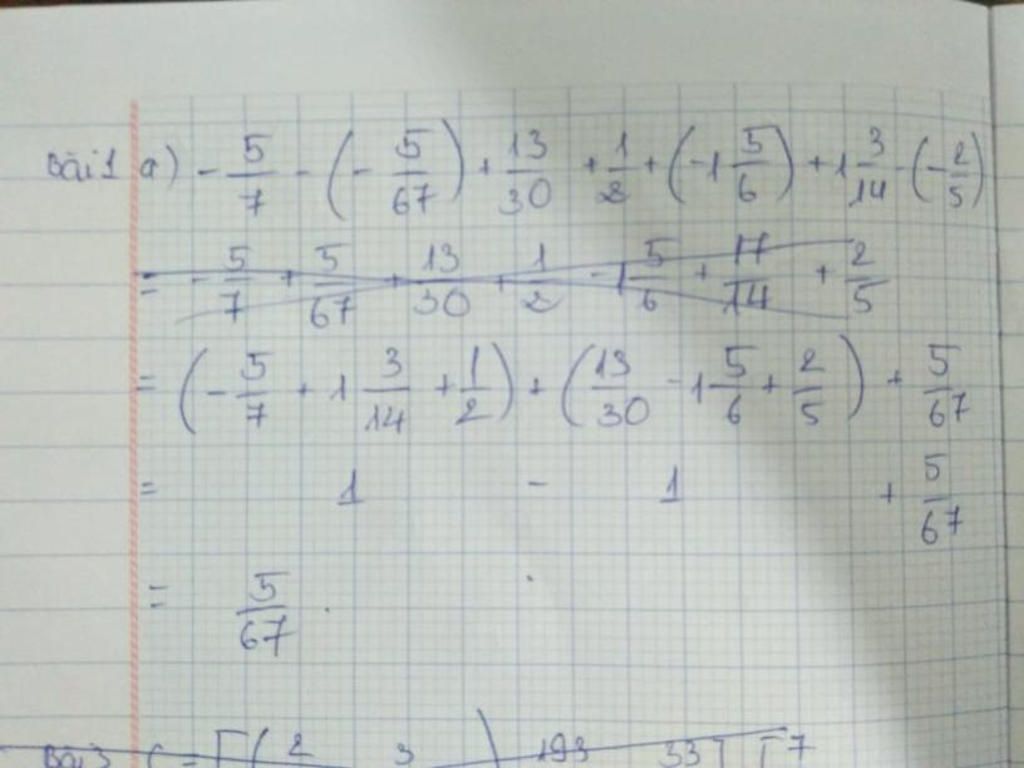 Bài 1 a) - 5/7 - (- 5/67) + 13/30 + 1/2 + (-1 5/6) + 1 3/14 - (- 2/5)
= - 5/7 + 5/67 + 13/30 + 1/2 - 1 5/6 + 17/14 + 2/5
= (- 5/7 + 1 3/14 + 1/2) + (13/30 - 1 5/6 + 2/5) + 5/67
= 1 - 1 + 5/67
= 5/67 .
Bài 3 193 33 7